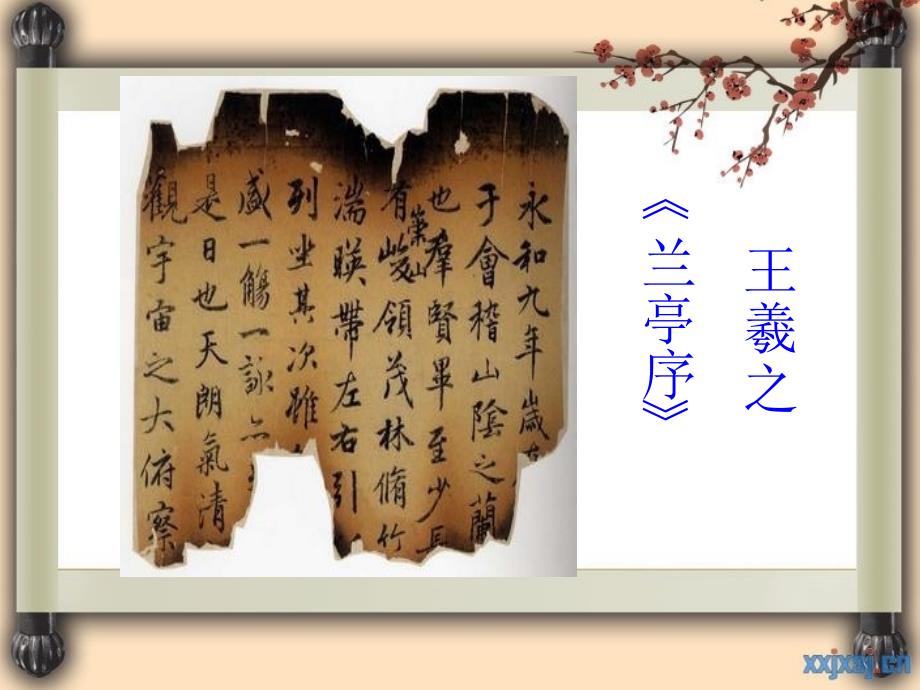 王羲之
《兰亭序》
永和九年歲在
于會稽山陰之蘭
也羣賢畢至少長
有崇山
峻領茂林脩竹
湍暎帶左右引
列坐其次雖
盛一觴一詠亦
是日也天朗氣清
觀宇宙之大俯察
xxjxsj.cn